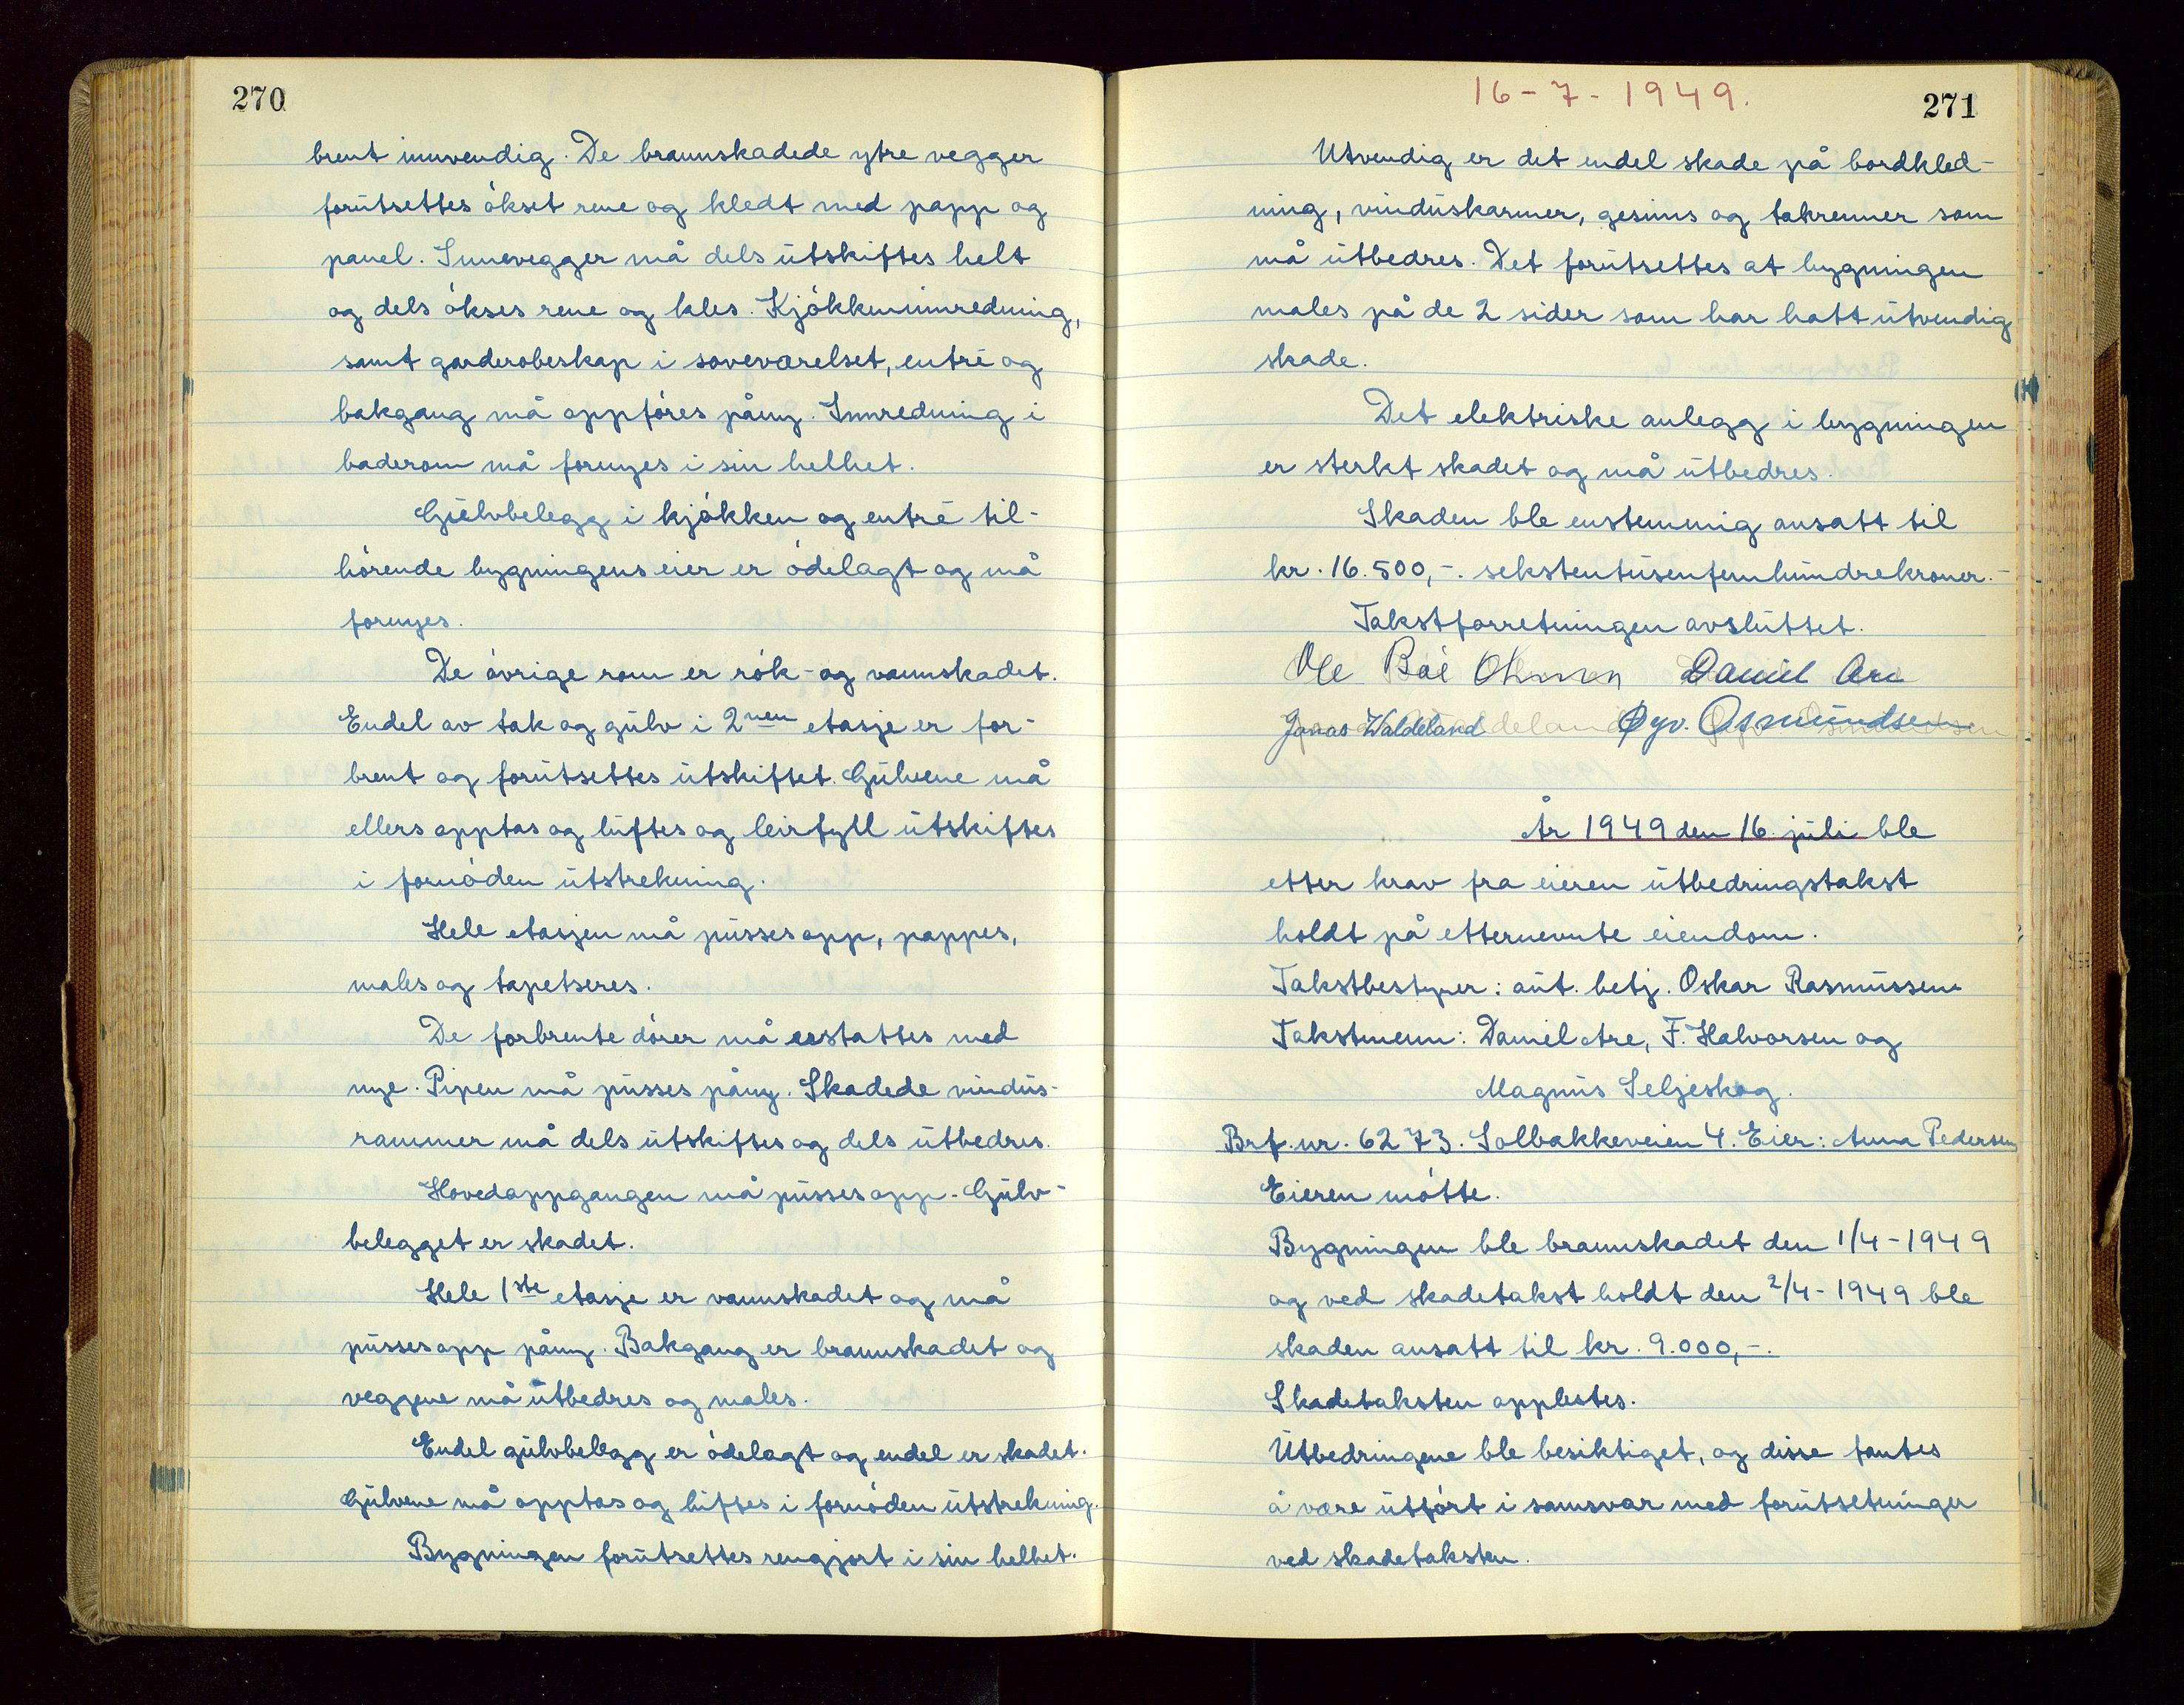 270
brent innvendig. De brannskadede ytre vegger
forutsettes økset rene og kledt med papp og
panel. Innevegger må dels utskiftes helt
og dels økses rene og kles. Kjøkkeninnredning,
samt garderobeskap i soveværelset, entré og
bakgang må oppføres påny. Innredning i
baderom må fornyes i sin helhet.
Gulvbelegg i kjøkken og entré til-
hørende bygningens eier er ødelagt og må
fornyes.
De øvrige rom er røk- og vannskadet.
Endel av tak og gulv i 2nen etasje er for-
brent og forutsettes utskiftet. Gulvene må
ellers opptas og luftes og leirfyll utskiftes
i fornøden utstrekning.
Hele etasjen må pusses opp, pappes,
males og tapetseres.
De forbrente dører må erstattes med
nye. Pipen må pusses påny. Skadede vindus-
rammer må dels utskiftes og dels utbedres.
Hovedoppgangen må pusses opp. Gulv-
belegget er skadet.
Hele 1ste etasje er vannskadet og må
pusses opp påny. Bakgang er brannskadet og
veggene må utbedres og males.
Endel gulvbelegg er ødelagt og endel er skadet.
Gulvene må opptas og luftes i fornøden utstrekning.
Bygningen forutsettes rengjort i sin helhet.
16-7-1949.
271
Utvendig er det endel skade på bordkled-
ning, vinduskarmer, gesims og takrenner som
må utbedres. Det forutsettes at bygningen
males på de 2 sider som har hatt utvendig
skade.
Det elektriske anlegg i bygningen
er sterkt skadet og må utbedres.
Skaden ble enstemmig ansatt til
kr. 16.500,-. sekstentusenfemhundrekroner.-
Takstforretningen avsluttet.
Ole Boé Daniel Are
Jonas Waldeland Øyv. Osmundsen
År 1949 den 16. juli ble
etter krav fra eieren utbedringstakst
holdt på etternevnte eiendom.
Takstbestyrer: aut. betj. Oskar Rasmussen
Takstmenn: Daniel Are, F. Halvorsen og
Magnus Seljeskog.
Brf. nr. 6273. Solbakkeveien 4. Eier: Anna Pedersen
Eieren møtte.
Bygningen ble brannskadet den 1/4-1949
og ved skadetakst holdt den 2/4-1949 ble
skaden ansatt til kr. 9.000,-.
Skadetaksten opplestes.
Utbedringene ble besiktiget, og disse fantes
å være utført i samsvar med forutsetninger
ved skadetaksten.